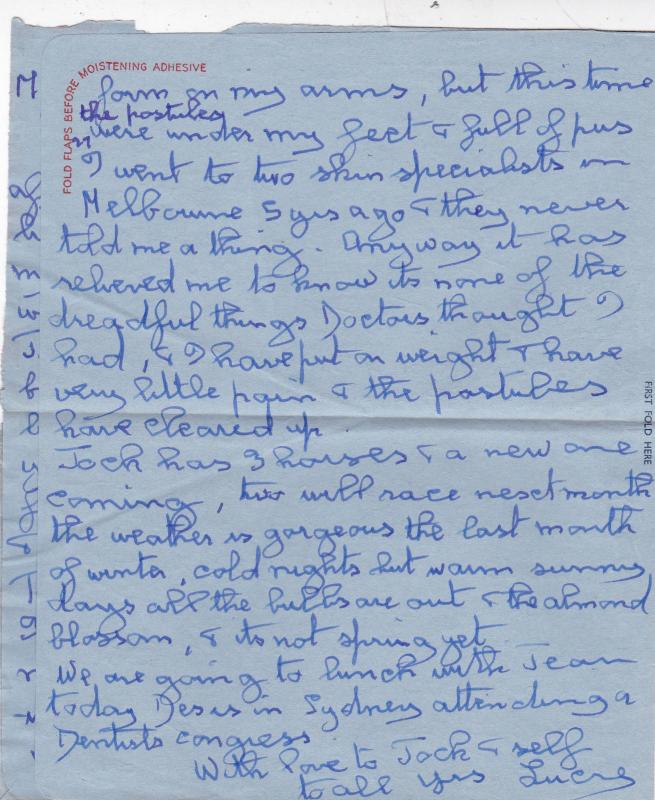 FOLD FLAPS BEFORE MOISTENING ADHESIVE
form on my arms, but this time
the postules
were under my feet & full of pus
I went to two skin specialists in
Melbourne 5 yrs ago & they never
told me a thing. Anyway it has
relieved me to know its none of the
dreadful things Doctors thought I
had, & I have put on weight & have
very little pain & the postules
have cleared up.
Jock has 3 horses & a new one
coming, two will race next month
the weather is gorgeous the last month
of winter, cold nights but warm sunny
days all the bulbs are out & the almond
blossom, & its not spring yet.
We are going to lunch with Jean
today Des is in Sydney attending a
Dentists congress.
With love to Jock & self
to all yrs
FIRST FOLD HERE